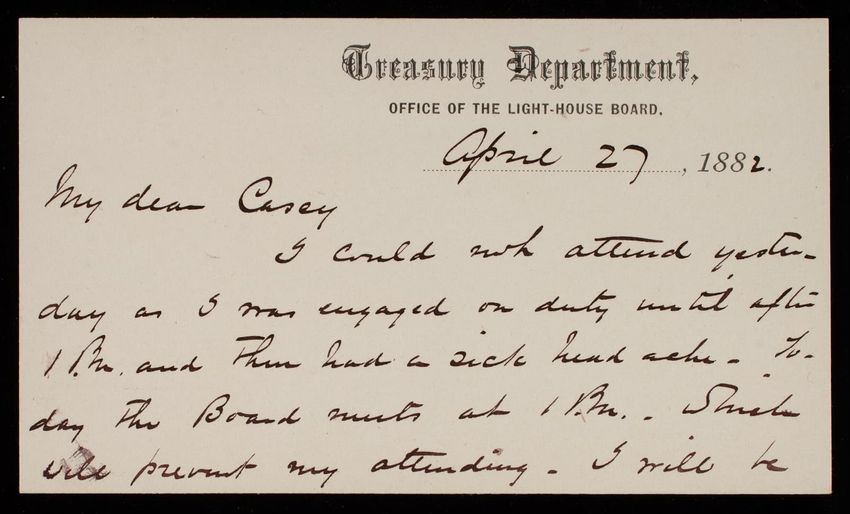 Treasury Department,
OFFICE OF THE LIGHT-HOUSE BOARD,
April 27, 1882.
My dear Casey
I could not attend yester-
day as I was engaged on duty until after
1 P.M. and then had a sick head ache - To-
day the Board meets at 1 P.M. - which
will prevent my attending - I will be